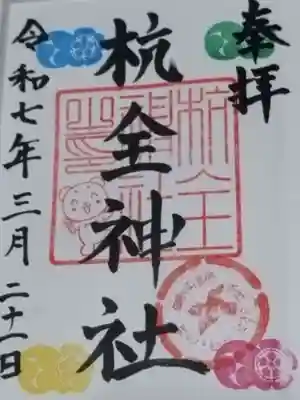 奉拝
杭全神社
令和七年三月二十一日